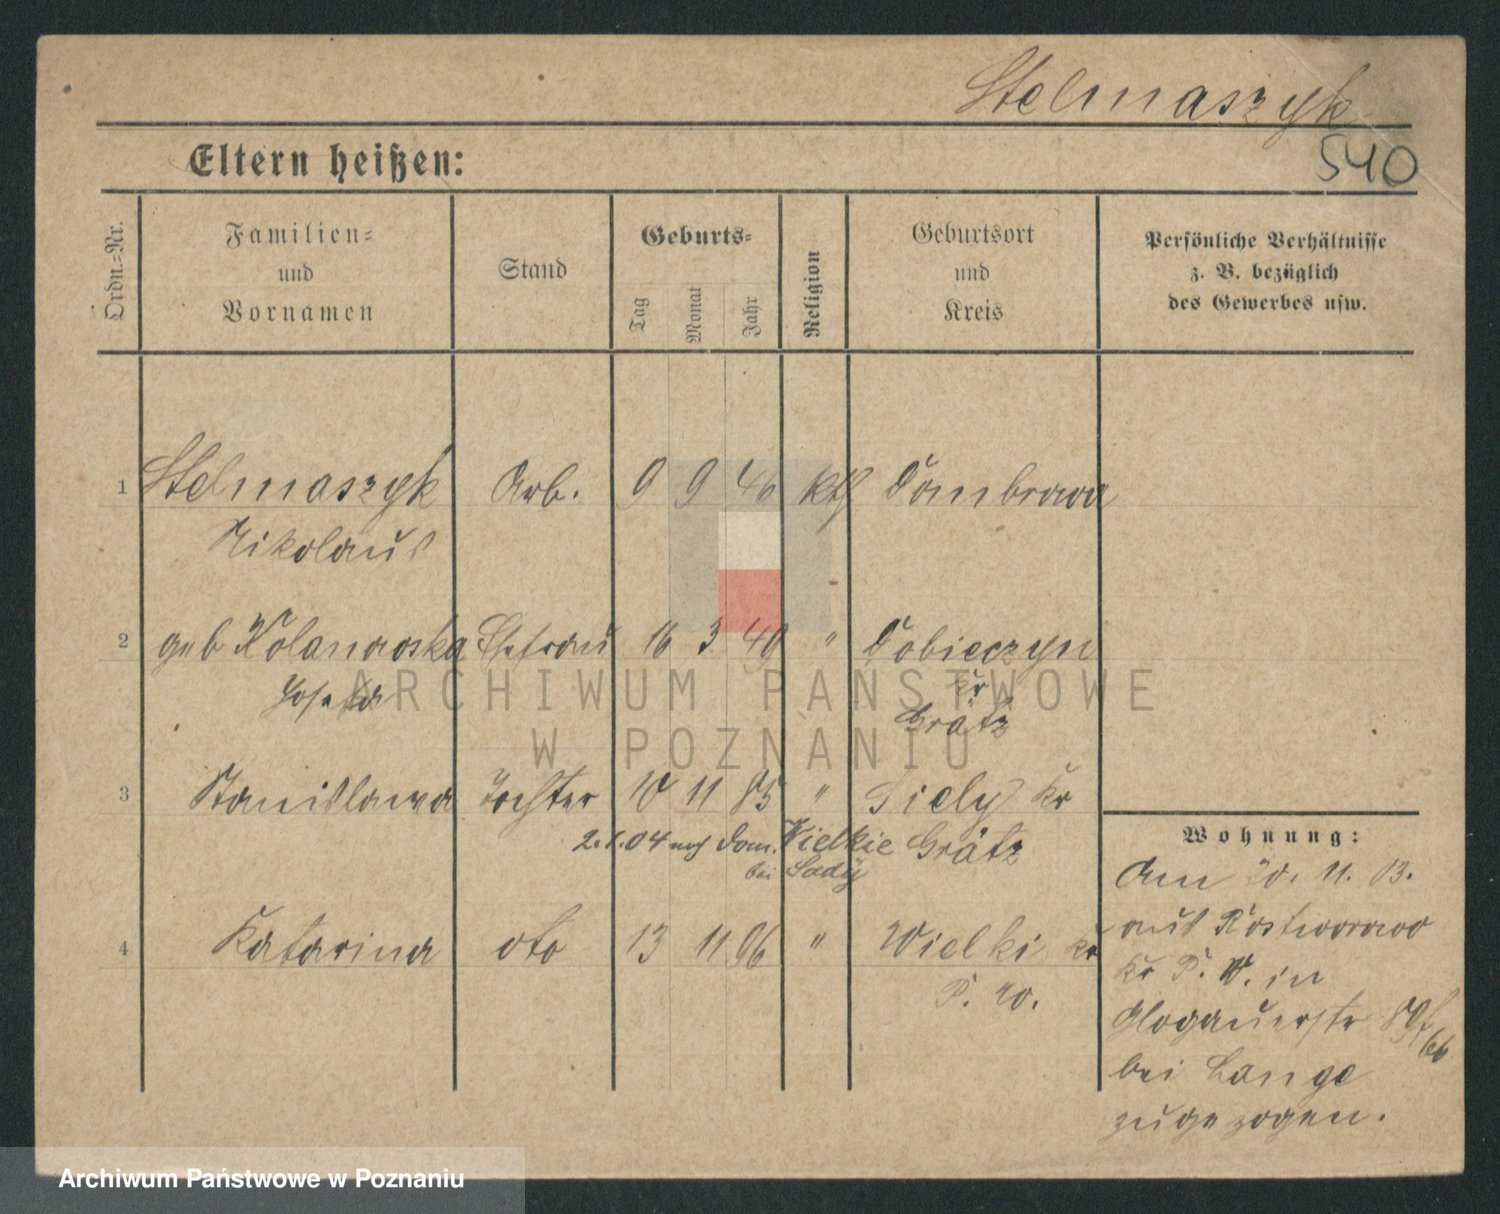 Stelmaszyk
540
Eltern heißen:
Ordn.-Nr.
Familien-
und
Vornamen
Stand
Geburts-
Tag
Monat
Jahr
Religion
Geburtsort
und
Kreis
Persönliche Verhältnisse
z. B. bezüglich
des Gewerbes usw.
1 Stelmaszyk Arb. 9 9 46 kth Dombrowa
Nikolaus
2 geb Kolanowska Ehefrau 16 3 49 " Dobieczyn
Josefa Kr
Grätz
3 Stanislawa Tochter 10 11 85 " Siely Kr
2.1.04 nach Dom. Wielkie Grätz
bei Sady
4 Katarina dto 13 11 96 " Wielki Kr
P. W.
Wohnung:
Am 20. 11. 03.
aus Rostworowo
Kr P. W. in
Glogauerstr 89
bei Lange
zugezogen.
ARCHIWUM PAŃSTWOWE
W POZNANIU
Archiwum Państwowe w Poznaniu